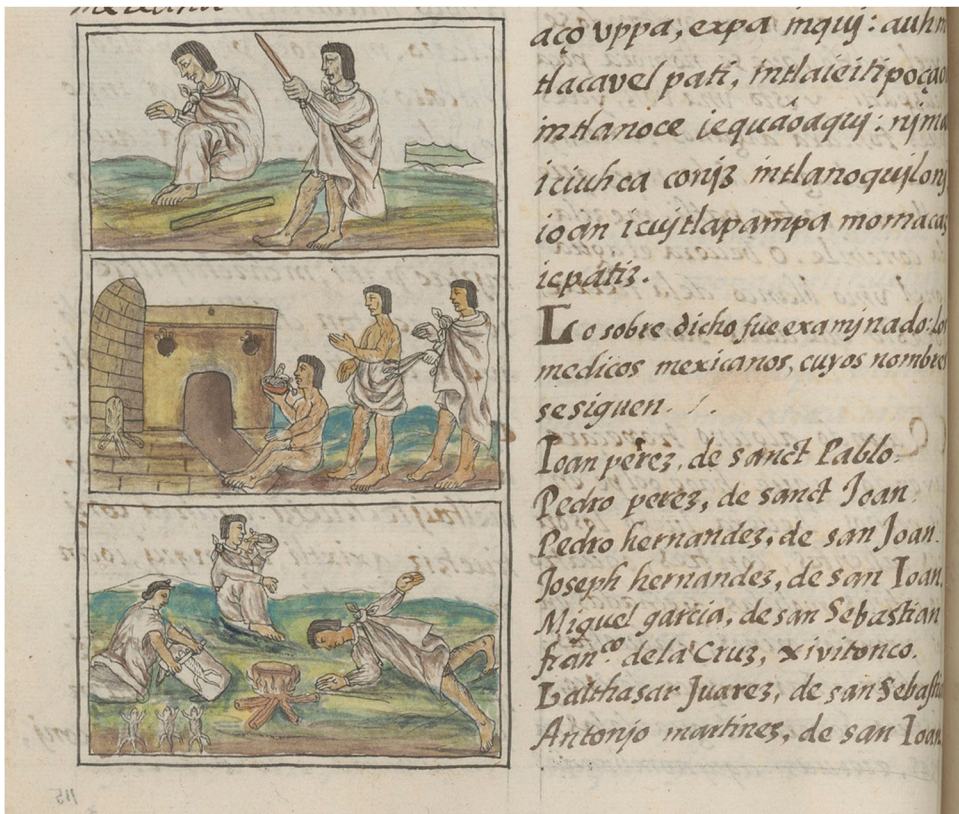 mexicana
aço vppa, expa inquj: auh in
tlacavel pati, intlaieitipoçao
intlanoce iequaoaquj: njma
iciuhca conjz intlanoqujlonj
ioan icujtlapampa momacaz
icpatiz.
Lo sobre dicho fue examjnado: los
medicos mexicanos, cuyos nombre
se siguen.
Ioan perez, de sanct Pablo.
Pedro perez, de sanct Ioan.
Pedro hernandez, de san Joan.
Joseph hernandez, de san Ioan.
Miguel garcia, de san Sebastian
franco. dela Cruz, xivitonco.
Balthasar Juarez, de san Sebasti
Antonjo martinez, de san Ioan.